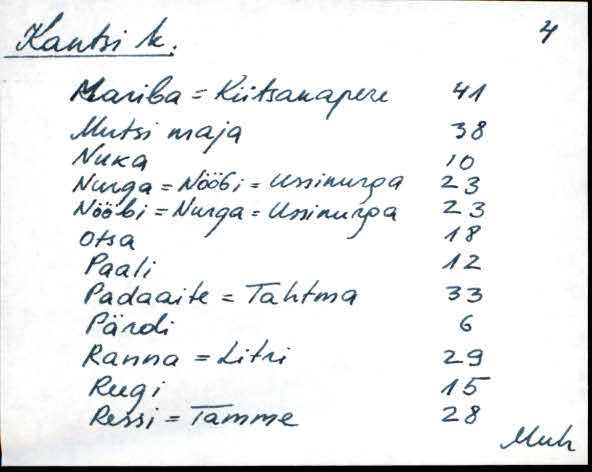 Kantsi k. 4
Mariba = Kiitsanapere 41
Mutsi maja 38
Nuka 10
Nurga = Nööbi = Ussinurga 23
Nööbi = Nurga = Ussinurga 23
Otsa 18
Paali 12
Padaaite = Tahtma 33
Pärdi 6
Ranna = Litri 29
Reegi 15
Ressi = Tamme 28
Muh